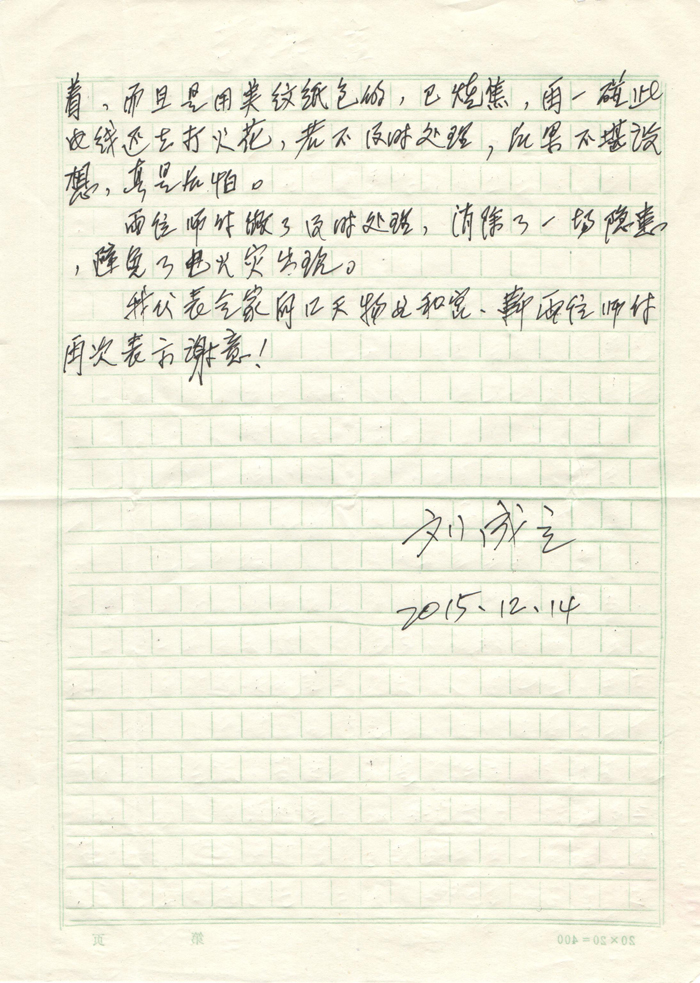 着，而且是用美纹纸包的，已烧焦，再一碰此
电线还去打火花，若不及时处理，后果不堪设
想，真是后怕。
两位师付做了及时处理，消除了一场隐患
，避免了电火灾出现。
我代表全家向天物业和宫、两位师付
再次表示谢意！
刘成立
2015.12.14
页 第 20×20=400